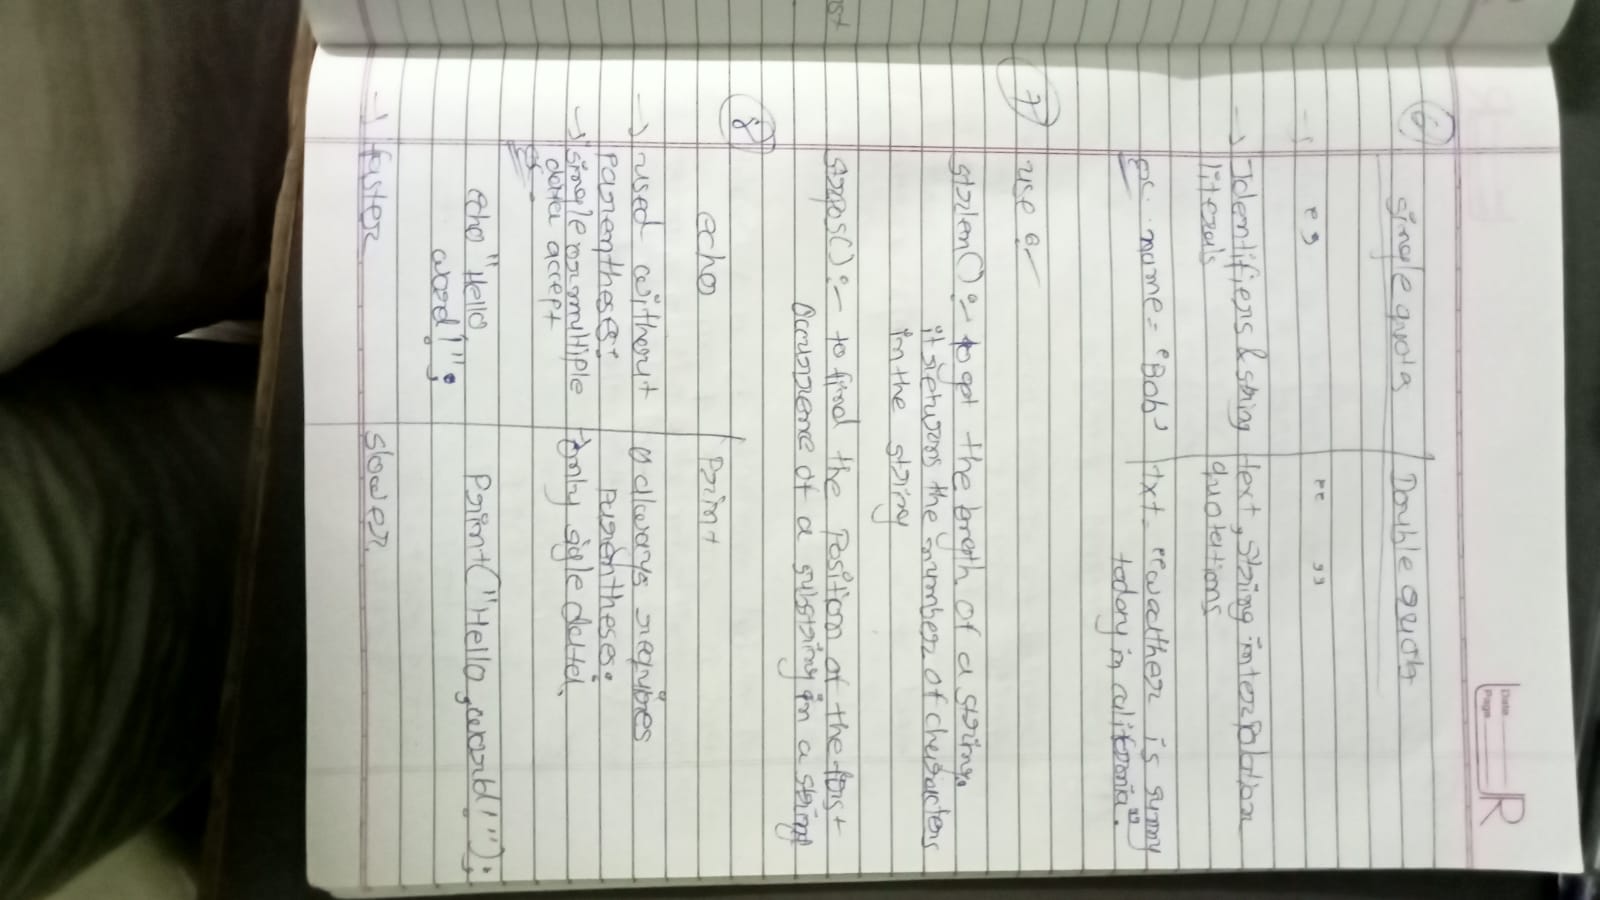 Date
Page
R
6
single quots | Double quots
→ ' ' | " "
→ Identifiers & string | text, string interpolation
literals | quotations
ex:. name = 'Bob' | txt = "weather is sunny
today in califronia".
7 use of
strlen() :- to get the length of a string.
it returns the number of characters
in the string
strpos() :- to find the position of the first
Occurrence of a substring in a string
8
echo | Print
→ used without | always requires
parentheses: | parentheses:
→ single or multiple | → only sigle data.
data accept
ex.
echo "Hello, | Print("Hello, world!");
world!";
→ faster | slower